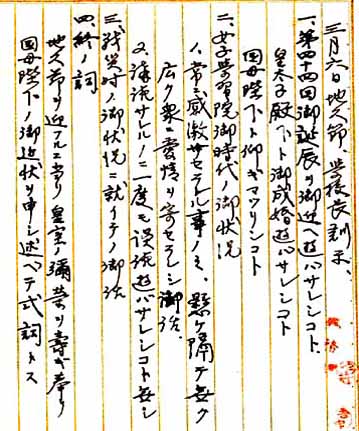 三月六日地久節、学校長訓示、
一、第四十四回御誕辰ヲ御迎ヘ遊バサレシコト、
皇太子殿下ト御成婚遊バサレシコト
国母陛下ト仰ギマツリシコト
二、女子学習院御時代ノ御状況
1、常ニ感激サセラル事ノミ、懸ケ隔テ無ク
広ク衆ニ愛情ヲ寄セラレシ御話
2、誦読サルルノニ一度モ誤読遊バサレシコト無シ
三、戦時ノ御状況ニ就イテノ御話
四、終ノ詞
地久節ヲ迎フルニ当リ皇室ノ弥栄ヲ寿ギ奉リ
国母陛下ノ御近状ヲ申シ述ベテ式詞トス